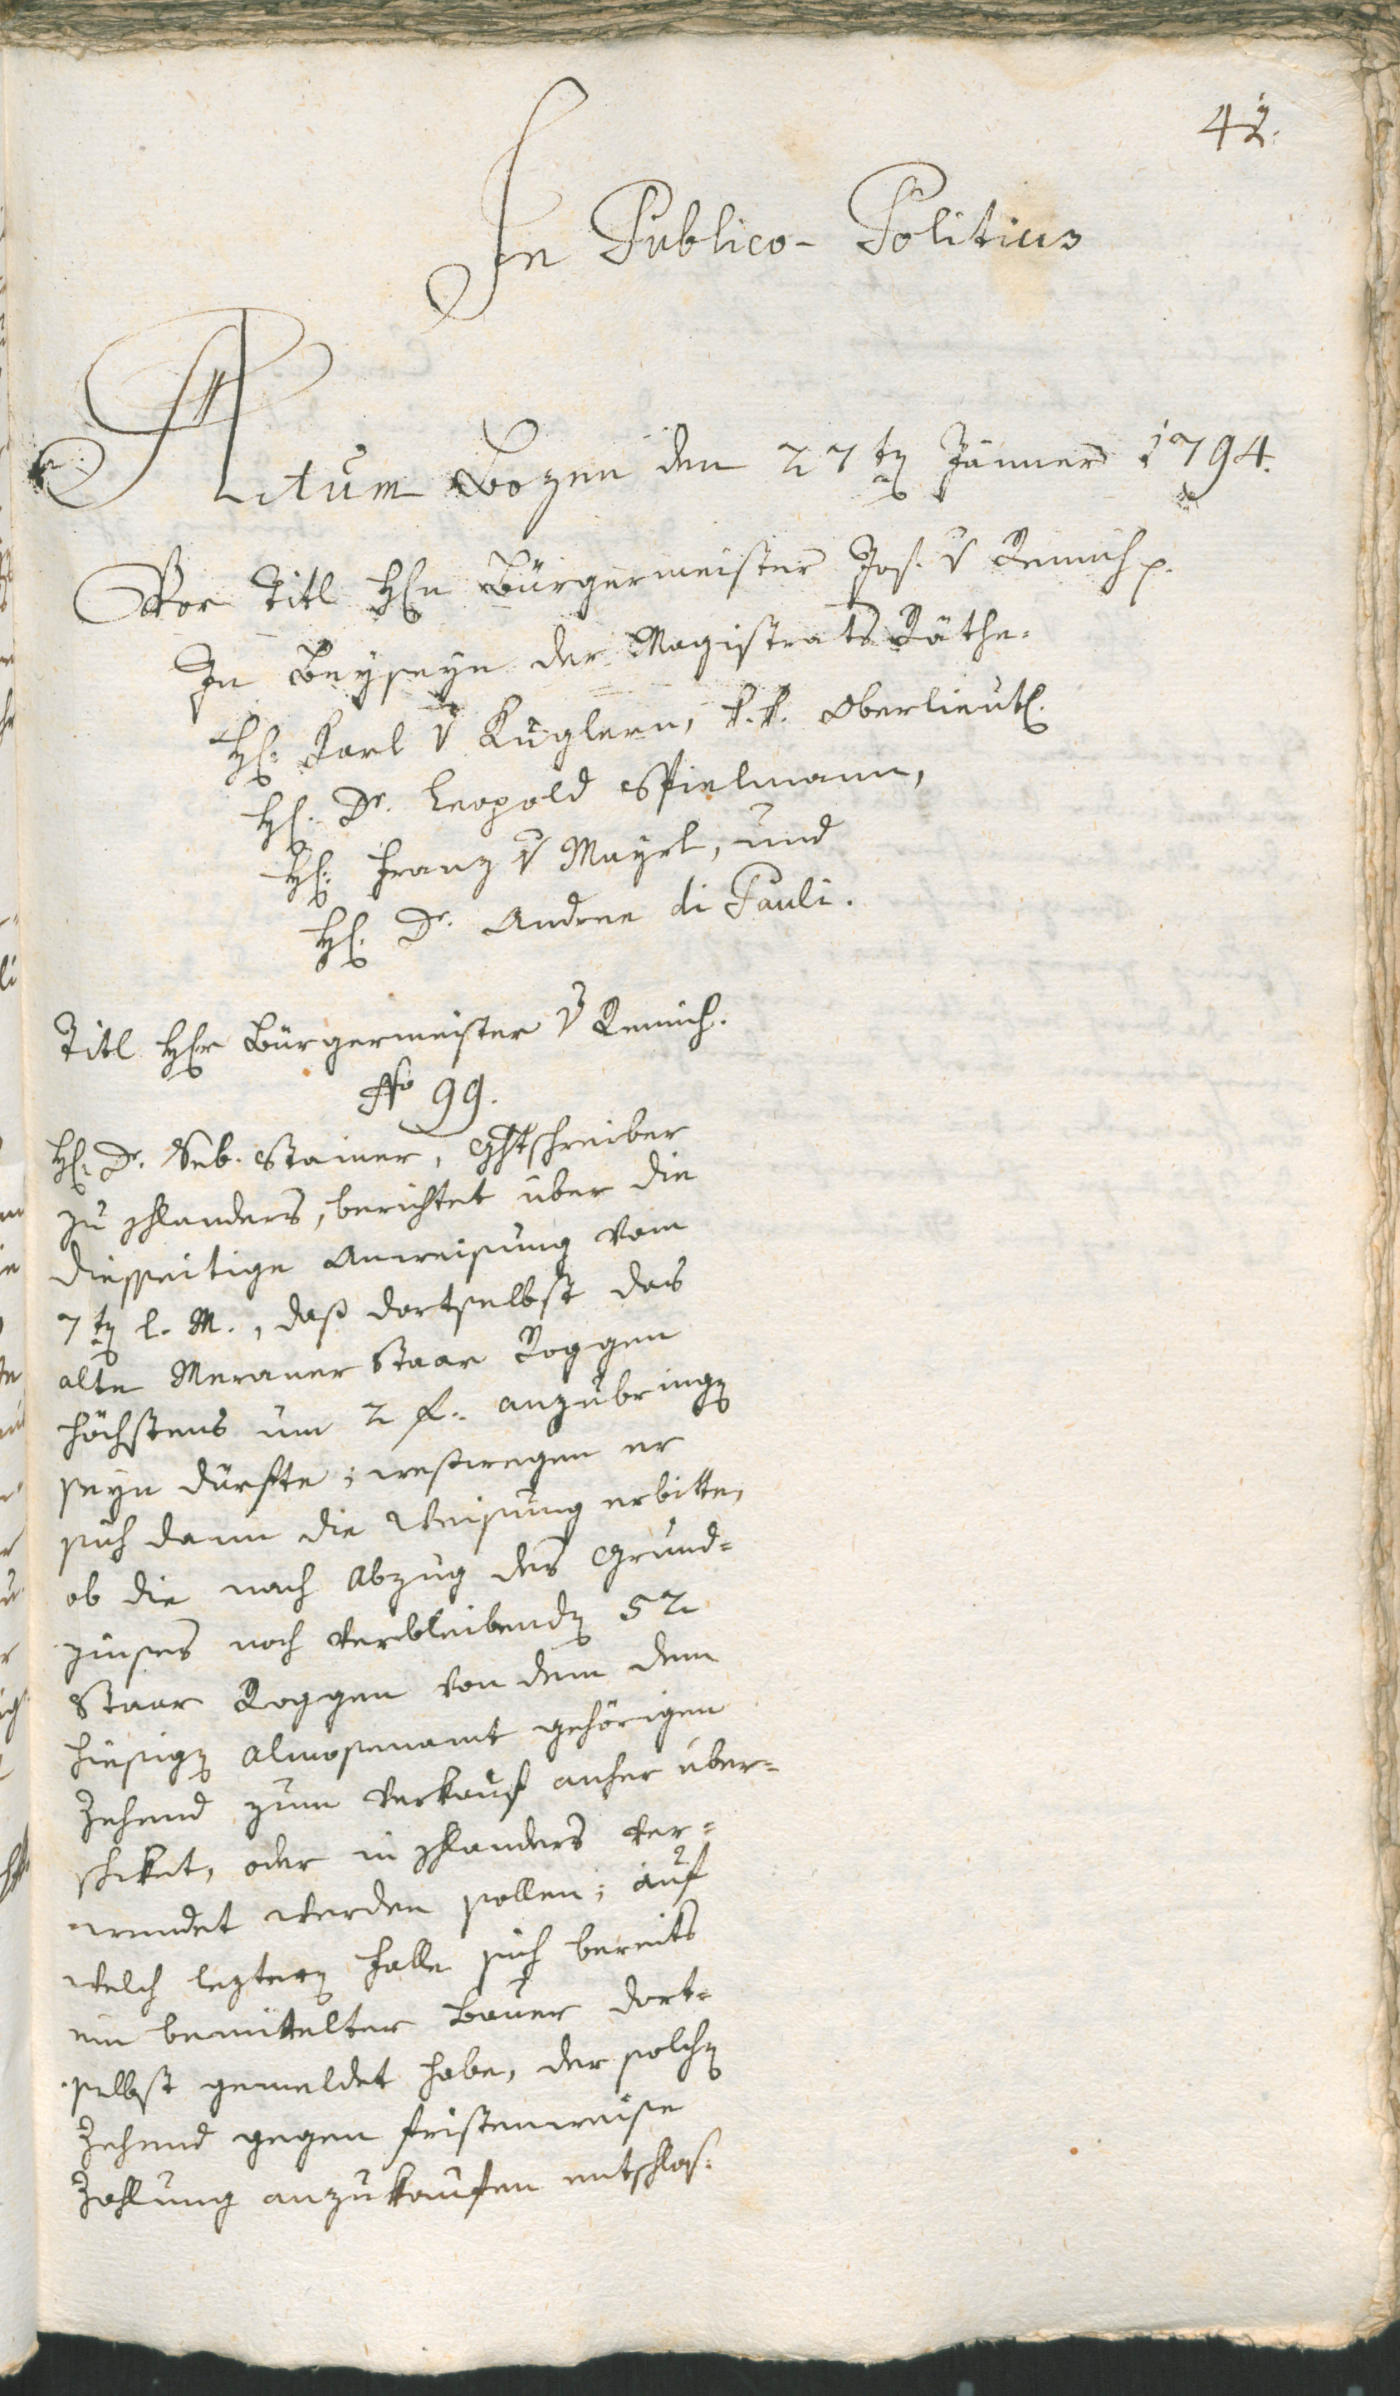 42.
In Publico-Politicis
Actum Bozen den 27ten Jänner 1794.
Vor Titl Hhn Bürgermeister Jos. v Remich p.
In Beyseyn der Magistrats Räthe.
Hh: Karl v Kuglern, k. k. Oberlieut.
Hh. Dr. Leopold Spielmann,
Hh: Franz v Mayrl, und
Hh. Dr. Andree di Pauli.
Titl Hhr Bürgermeister v Remich.
No 99.
Hh: Dr. Seb. Stainer, Ghtschreiber
zu Schlanders, berichtet über die
diesseitige Anweisung vom
7ten l. M., daß dortselbst das
alte Meraner Staar Roggen
höchstens um 2 f. anzubringen
seyn dürfte; weßwegen er
sich dann die Weisung erbitte,
ob die nach Abzug des Grund-
zinses noch verbleibenden 52
Staar Roggen von dem dem
hiesigen Almosenamt gehörigen
Zehend zum Verkauf anher über-
schiket, oder in Schlanders ver-
wendet werden sollen; auf
welch leztern Falle sich bereits
ein bemittelter Bauer dort-
selbst gemeldet habe, der solchen
Zehend gegen fristenweise
Zahlung anzukaufen entschlos-